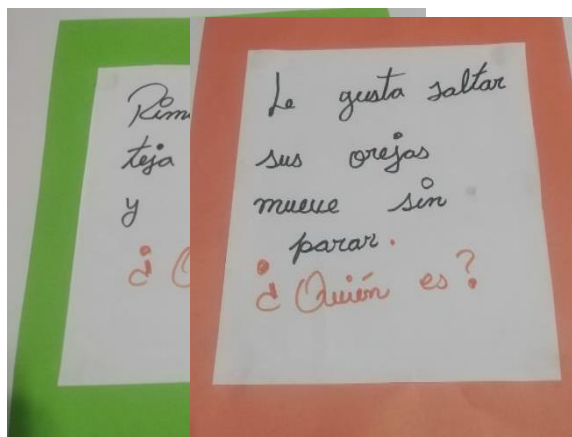 teja
y
Le gusta saltar
sus orejas
mueve sin
parar.
¿Quién es?